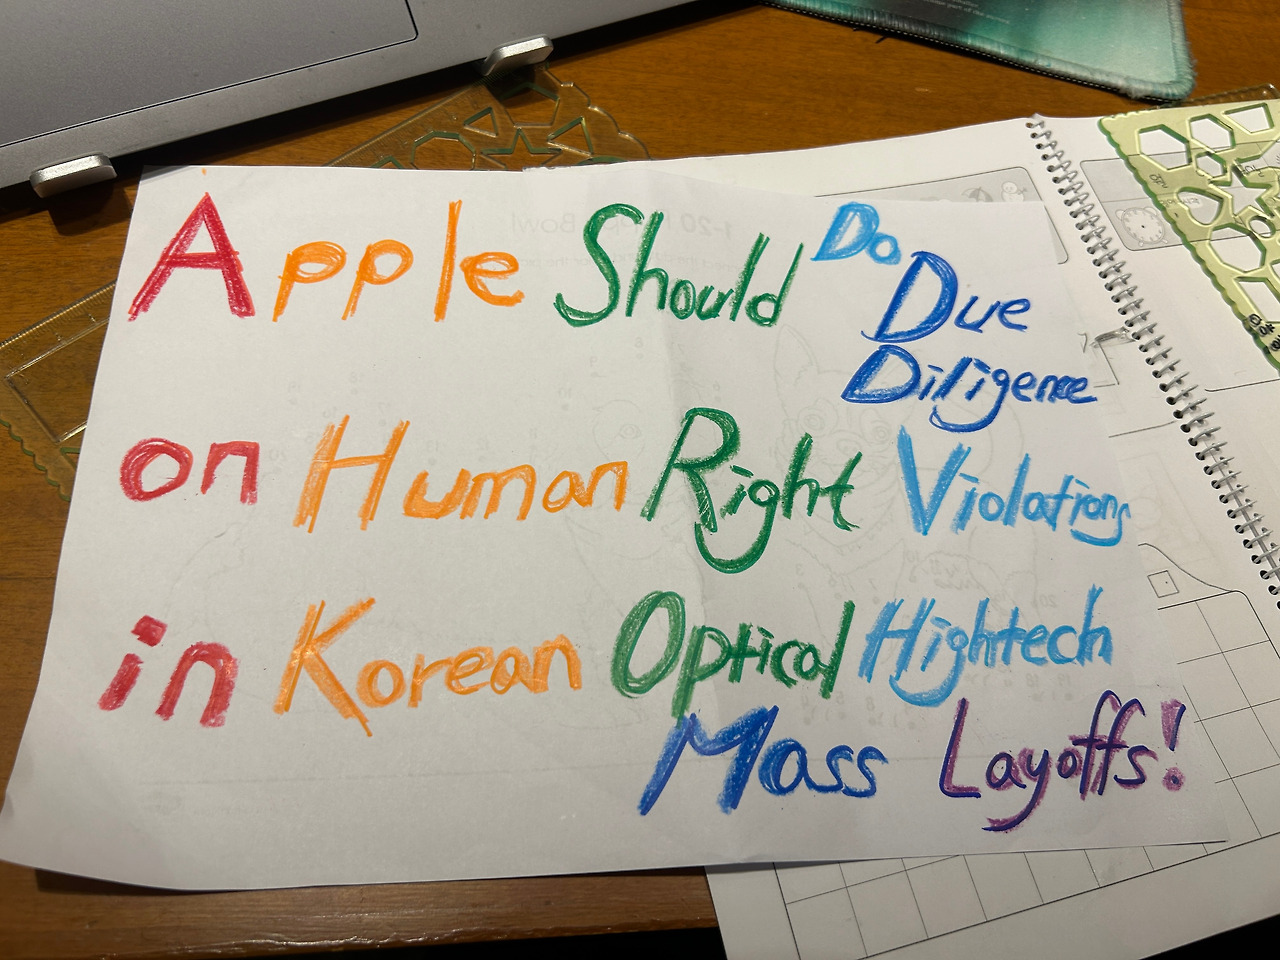 Apple Should Do
Due
Diligence
on Human Right Violations
in Korean Optical Hightech
Mass Layoffs!